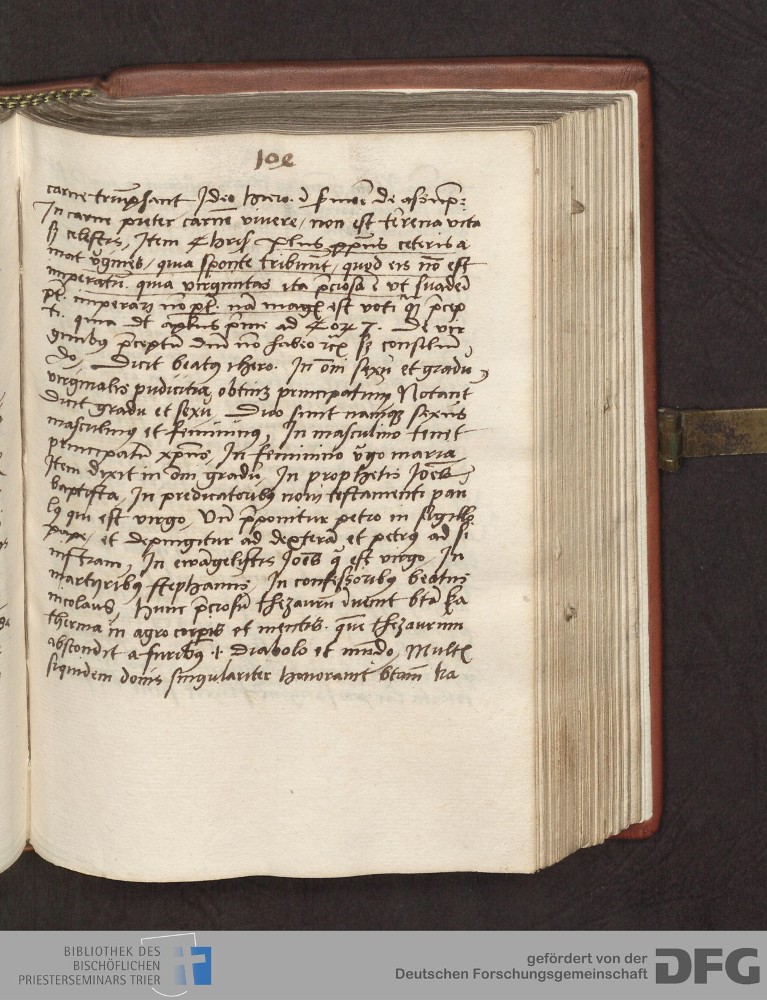 108
carne triũphant Ideo hiero. ĩ ẜmoẽ de assũp:
In carne preter carnẽ vivere / non est terrena vita
sz celestis, Item ceteris a
mat v̾gines / quia sponte tribuũt / quod eis nõ est
imperatũ. quia virginitas ita p̃ciosa ẽ vt suaderi
pt. imperari nõ pt. nã magꝭ est voti p̃cep
ti. quia dt aplus prime ad De vir
ginibus p̃ceptũ dnĩ nõ habeo sz consiliũ
do, Dicit beatus ihero. In oñi sexu et gradu
virginalis pudicitia obtinz principatum Notant
dicit gradu et sexu Duo sunt namqz sexus
masculinus et femininus, In masculino tenet
principatũ xp̃us, In feminino v̾go maria
Item dixit in oñi gradu, In prophetis Joẽs
baptista, In predicatoribus novi testamenti pau
lus qui est virgo, Vñ p̃ponitur petro in sigillo
pape / et depingitur ad dexterã et petrus ad si
nistram, In ewãgelistis Joẽs est virgo, In
martyribus stephanus In confessoribus beatus
nicolaus, hunc p̃ciosũ thezaurũ btã ka
therina in agro corpĩs et mentis. quẽ thezaurum
abscondit a furibus .i. diabolo et mũdo, Multꝭ
siquidem donis singulariter honoravit btam ka
BIBLIOTHEK DES
BISCHÖFLICHEN
PRIESTERSEMINARS TRIER
gefördert von der
Deutschen Forschungsgemeinschaft
DFG